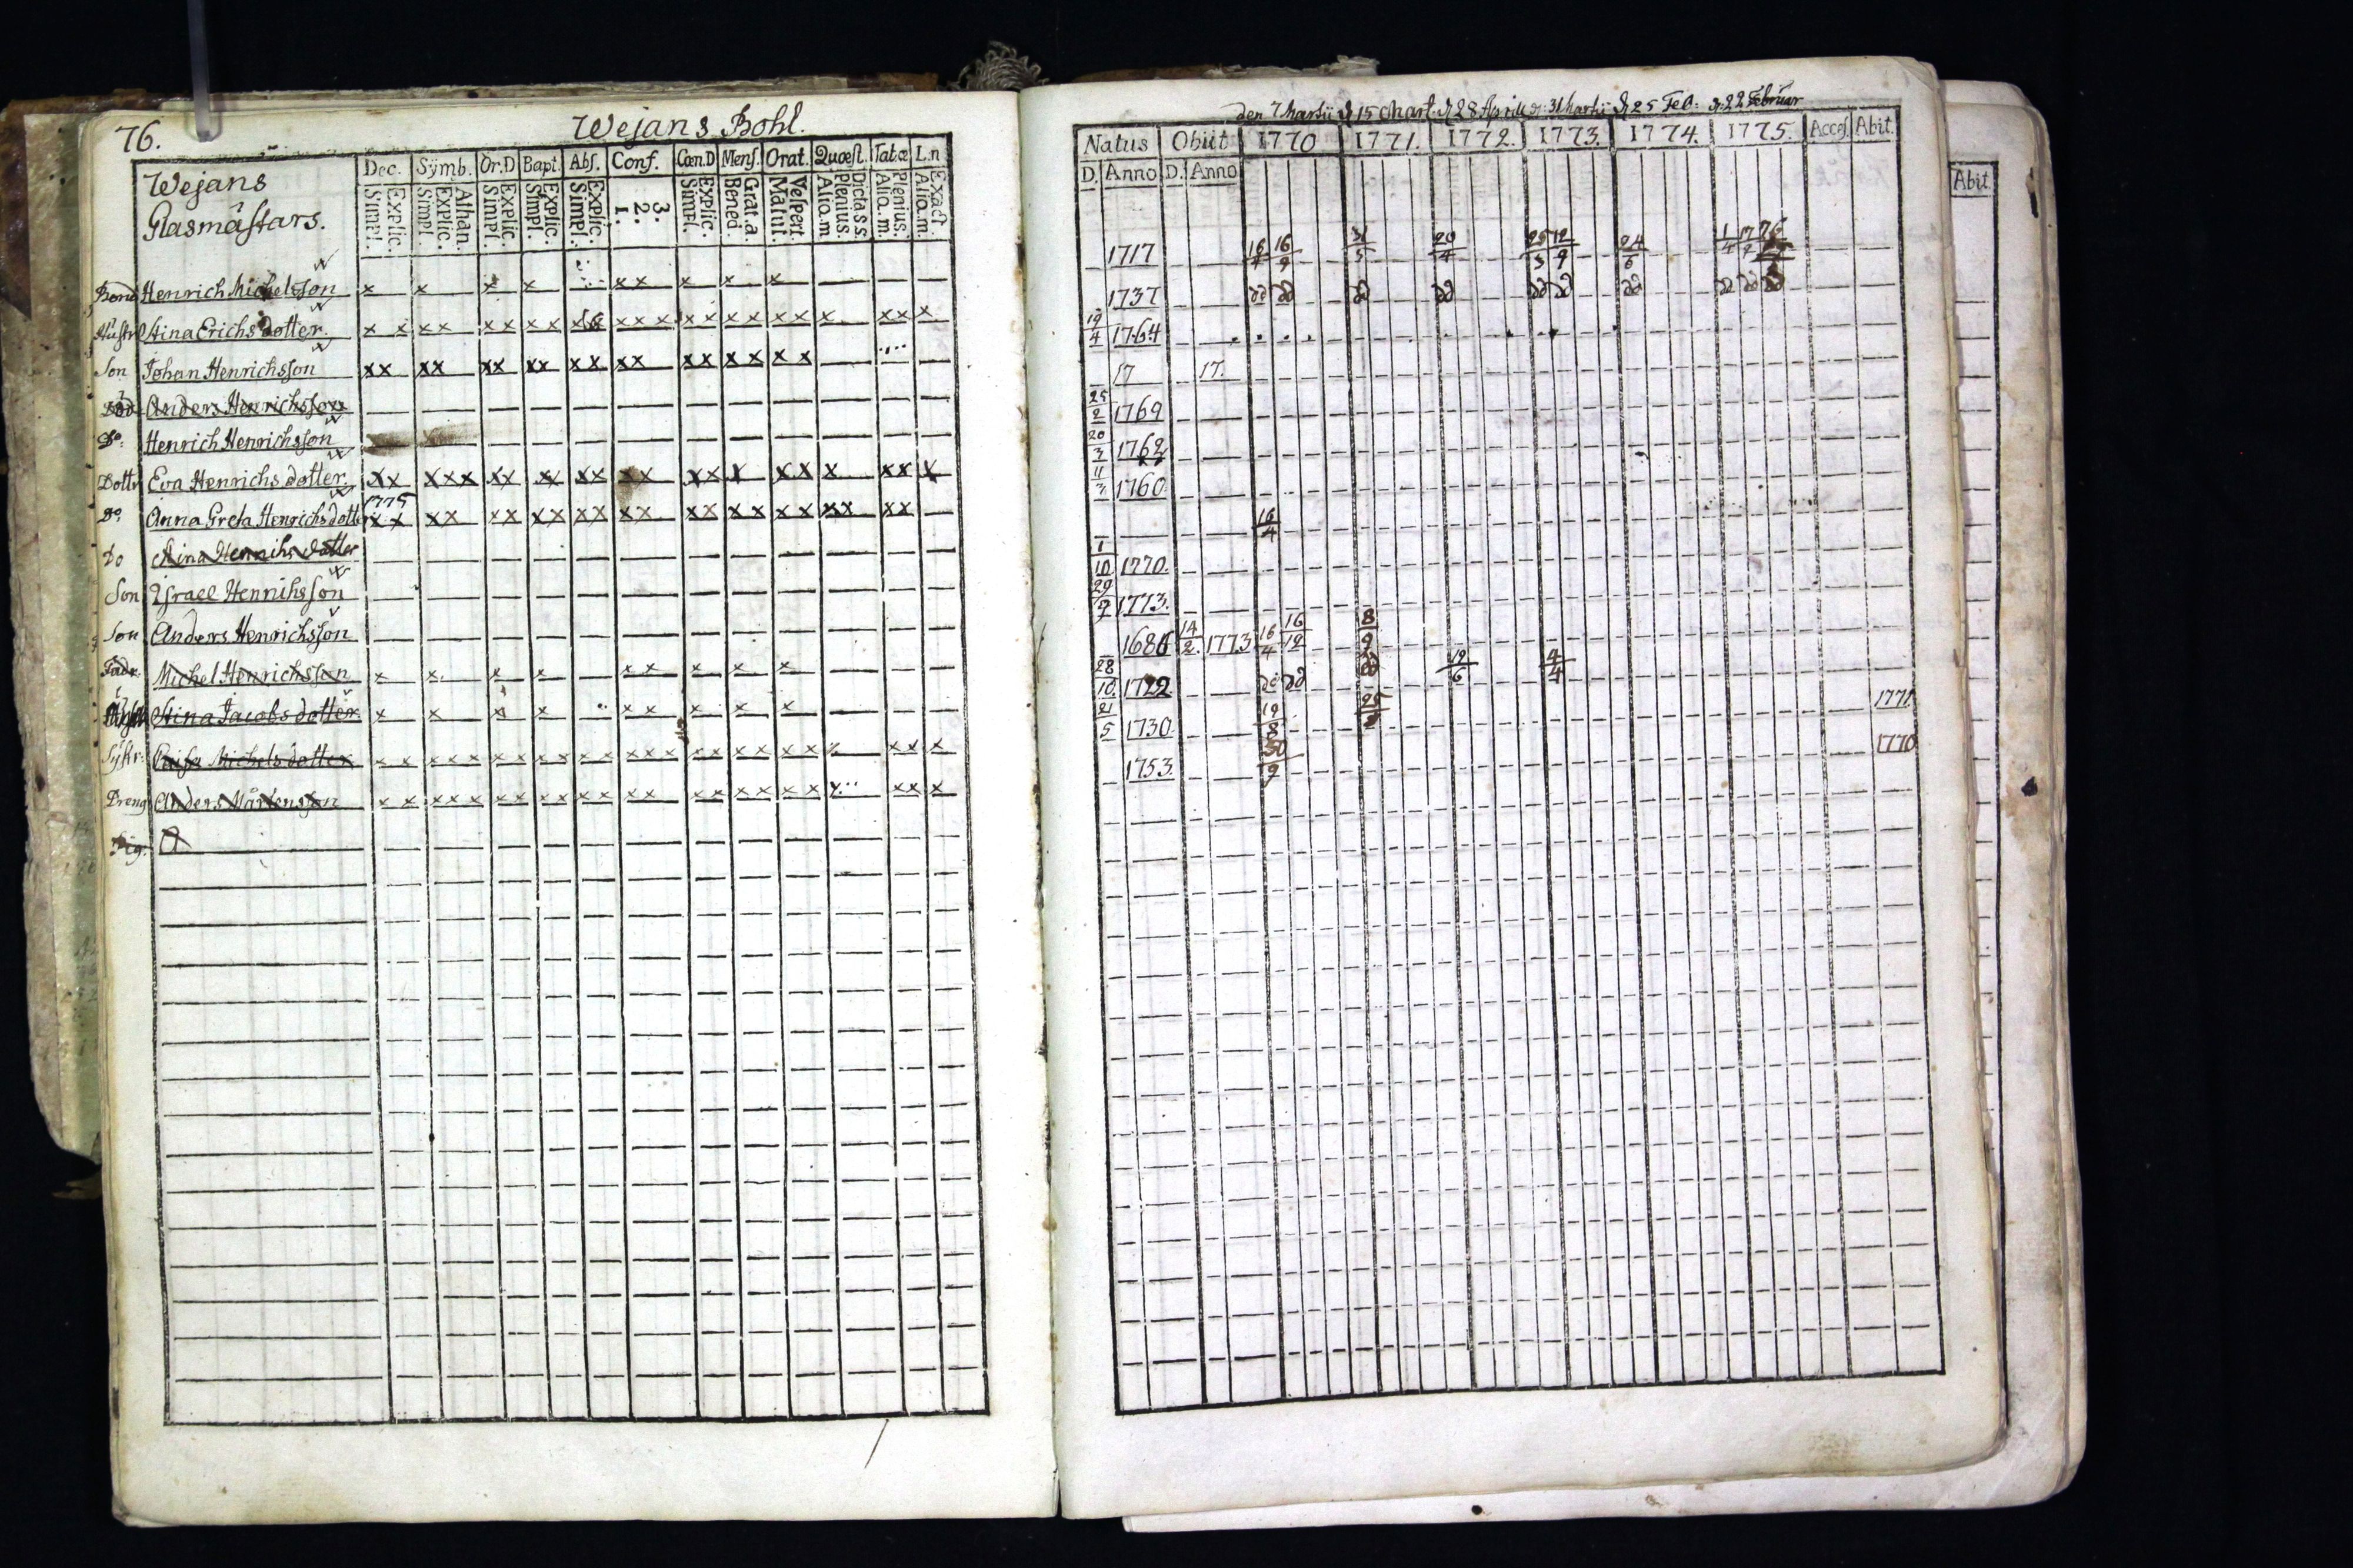 76.
Wejans Bohl.
Wejans
Glasmästars.
Dec. Symb. Or.D Bapt. Abs. Conf. Cœn.D Mens. Orat. Quæst. Tab.æ L.n
Simpl. Explic. Simpl. Explic. Athan. Simpl. Explic. Simpl. Explic. Simpl. Explic. 1. 2. 3. Simpl. Explic. Bened. Grat.a. Matut. Vespert. Alio.m Plenius. Dicta S.S. Alio.m. Plenius. Alio.m. Exact.
Bond Henrich Michelsson x x x x x x x x x
Hustr Stina Erichs dotter x x x x x x x x x x x x x x x x x x x x x x x
Son Johan Henrichsson x x x x x x x x x x x x x x x x x x
Anders Henrichsson
Do: Henrich Henrichsson
Dottr Eva Henrichs dotter x x x x x x x x x x x x x x x x x x x x x x
1775
Do. Anna Greta Henrichsdotter x x x x x x x x x x x x x x x x x x x x x x
Do Stina Henrihs dotter
Son Israel Henrihsson
Son Anders Henrichsson
Fadr. Michel Henrichsson x x x x x x x x x
Stina Jacobs dotter x x x x x x x x x
Systr: Caisa Michels dotter x x x x x x x x x x x x x x x x x x x x x x x
Dreng Anders Mårtensson x x x x x x x x x x x x x x x x x x x x x x
Pig.
den 7 Martii d. 15 Mart. d. 28 Aprill d. 31 Martii d. 25 Feb: d. 22 Februar
Natus Obiit 1770 1771. 1772. 1773. 1774. 1775. Acces. Abit.
D. Anno D. Anno
1717 16/4 16/9 20/4 12/9 24/6 1/4
1737 do do do do do do do do do do
19/4 1764
17 17.
25/2 1769
20/3 1762
11/3 1760.
16/4
1/10 1770.
29/9 1773.
1686 14/2. 1773 16/4 16/12 8/9
28/10 1722 do do do 19/6 4/4
21/5 1730. 19/8 1771
1753. 30/9 1770
Abit.